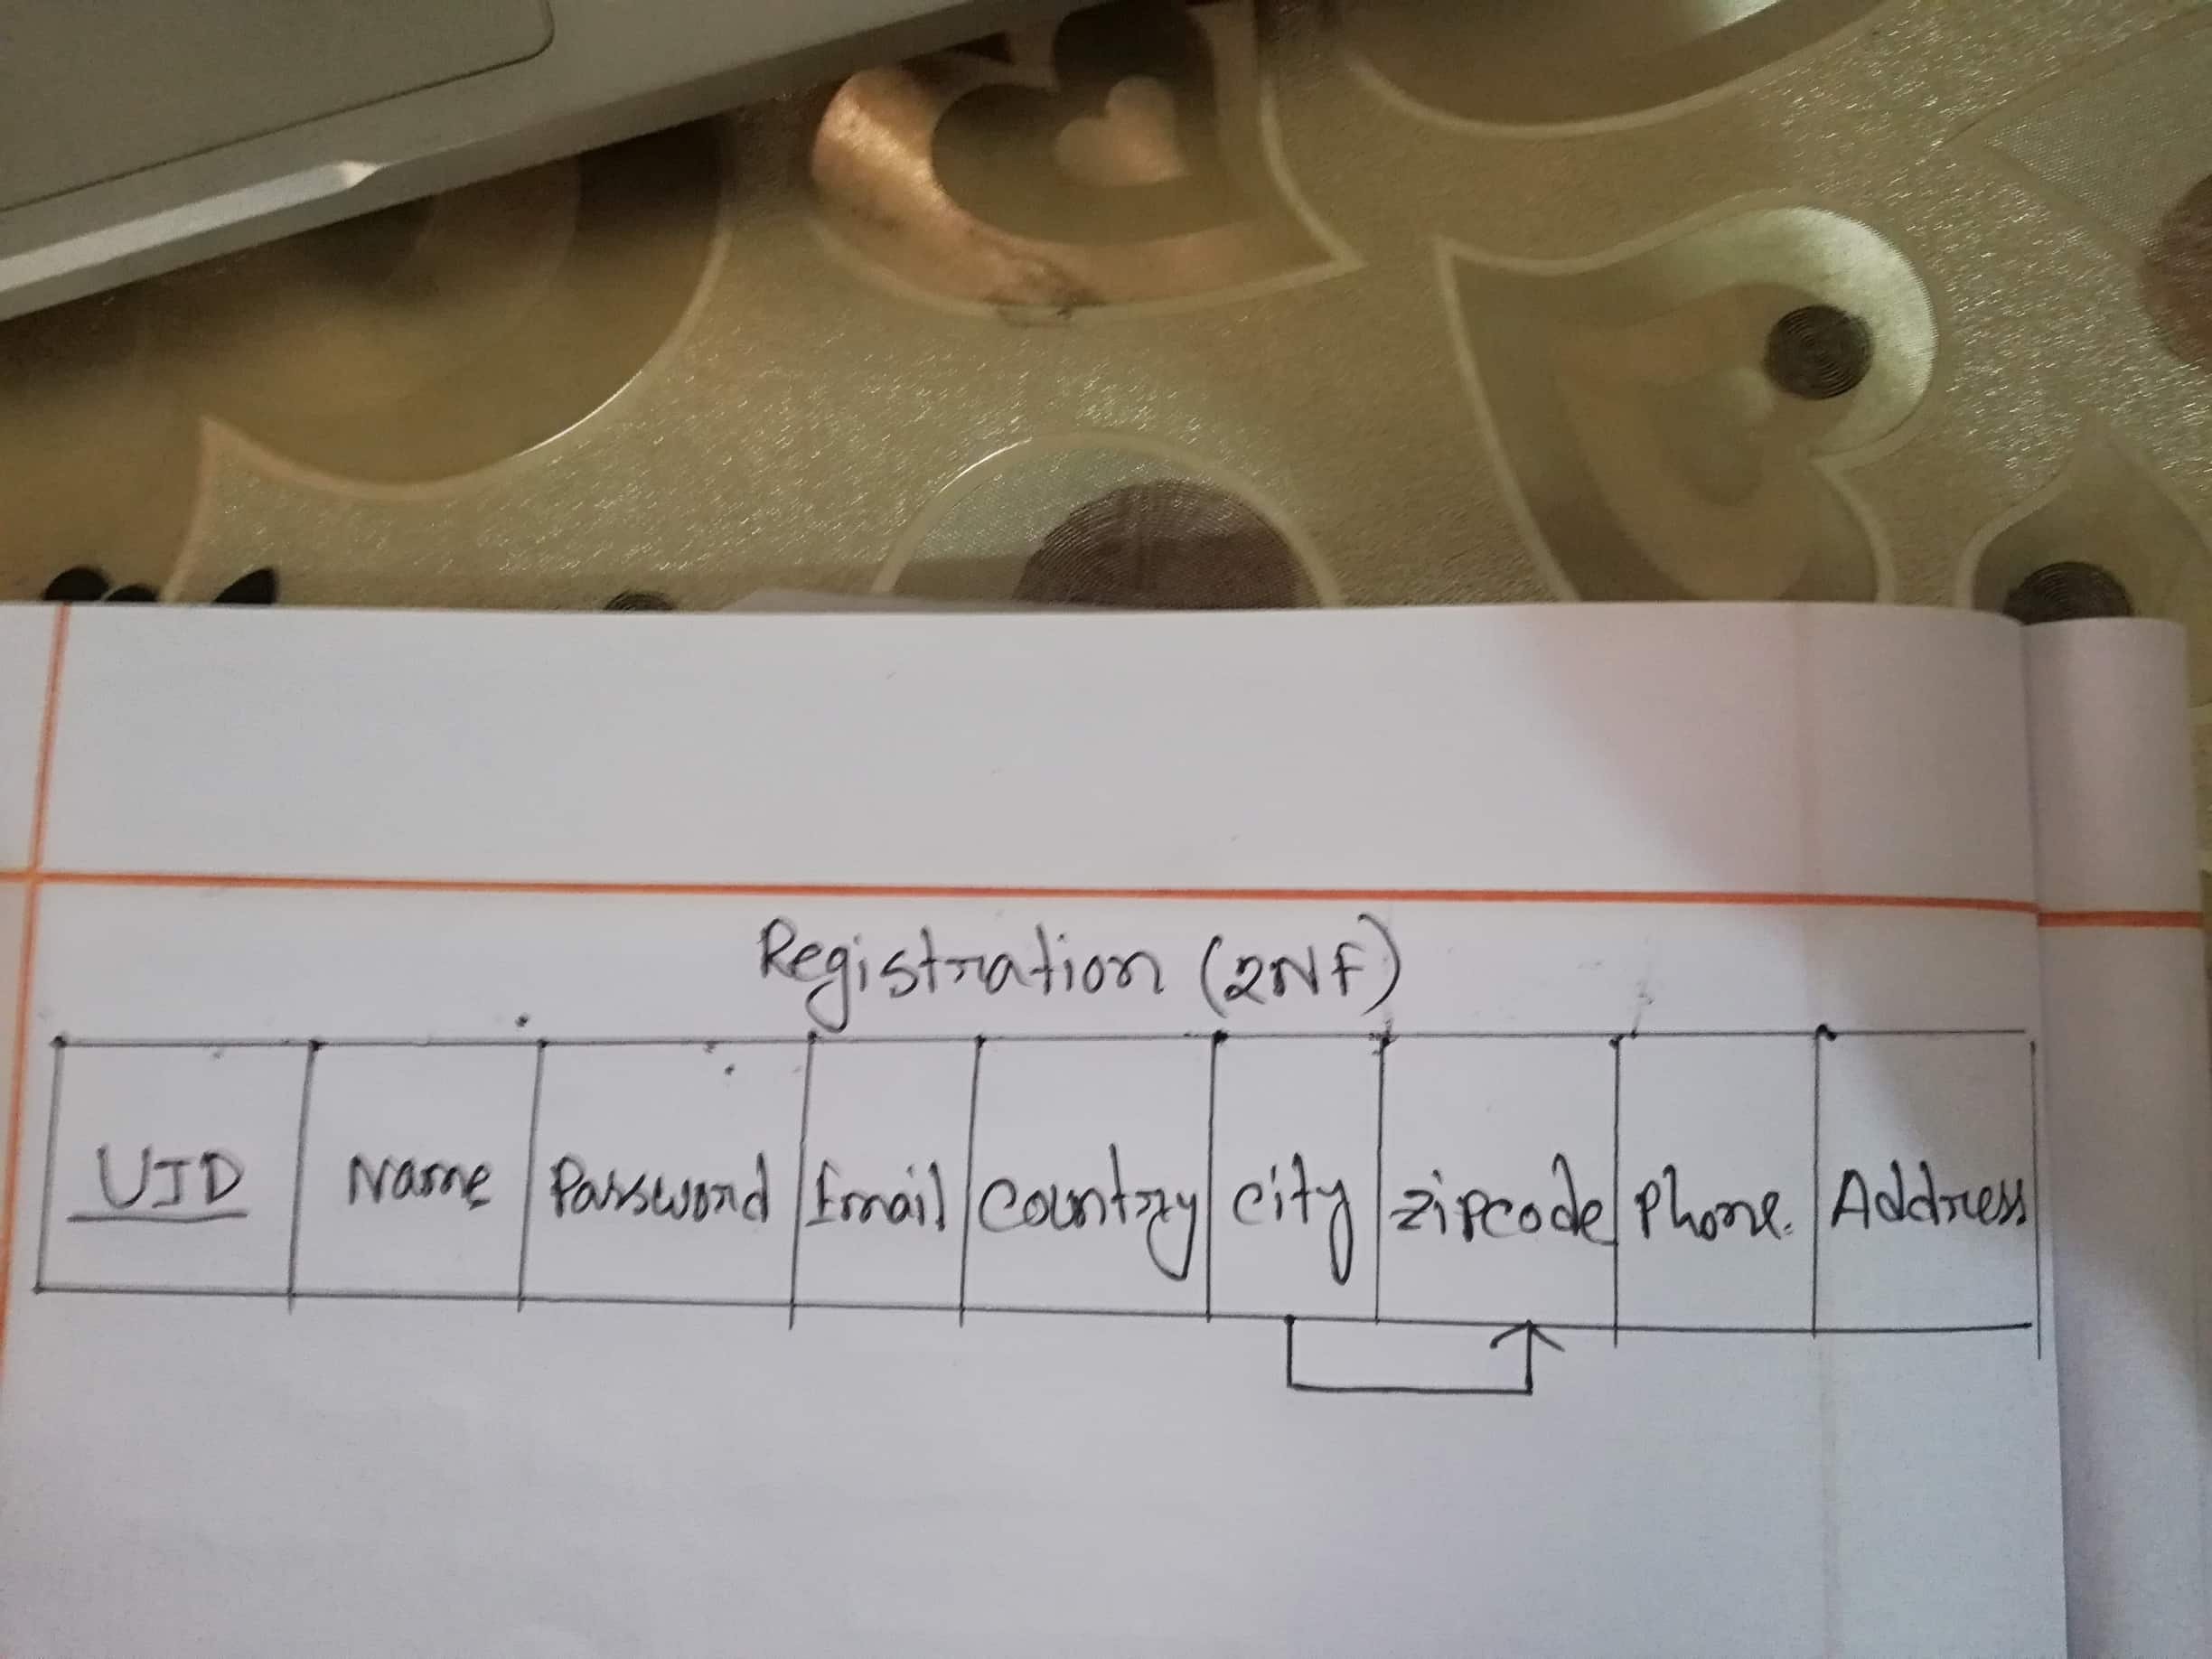 Registration (2NF)
UID Name Password Email Country city zipcode Phone. Address